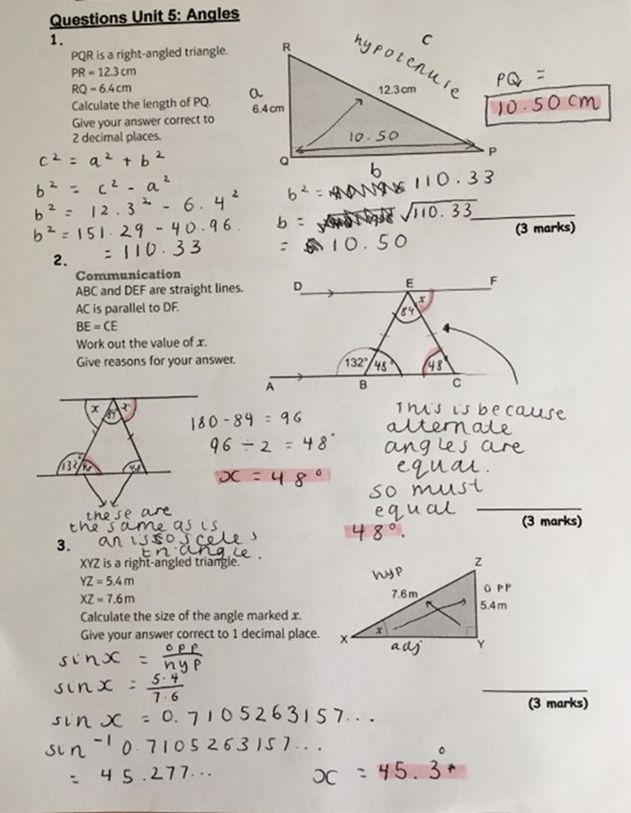 Questions Unit 5: Angles
1.
PQR is a right-angled triangle.
PR = 12.3 cm
RQ = 6.4 cm
Calculate the length of PQ.
Give your answer correct to
2 decimal places.
R
hypotenuse
c
a
6.4 cm
12.3 cm
10.50
Q
P
b
PQ =
10.50 cm
c² = a² + b²
b² = c² - a²
b² = 12.3² - 6.4²
b² = 151.29 - 40.96.
= 110.33
b² = 110.33
b = √110.33
= 10.50
(3 marks)
2.
Communication
ABC and DEF are straight lines.
AC is parallel to DF.
BE = CE
Work out the value of x.
Give reasons for your answer.
D
E
F
x
84
132°
48°
48°
A
B
C
x
84
x
132°
48
48
180 - 84 = 96
96 ÷ 2 = 48°
x = 48°
This is because
alternate
angles are
equal.
so must
equal
48°.
these are
the same as is
an isosceles
triangle.
(3 marks)
3.
XYZ is a right-angled triangle.
YZ = 5.4 m
XZ = 7.6 m
Calculate the size of the angle marked x.
Give your answer correct to 1 decimal place.
Z
hyp
7.6 m
opp
5.4 m
X
x
adj
Y
sin x = opp/hyp
sin x = 5.4/7.6
sin x = 0.7105263157...
sin⁻¹ 0.7105263157...
= 45.277...
x = 45.3°
(3 marks)